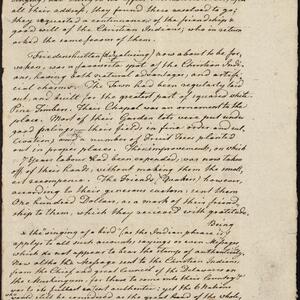 all their address, they found them resolved to go;
they requested a continuance of the friendship &
good will of the Christian Indians, who in return
asked the same favour of them.
Friedenshutten (Wyalusing) now about to be for-
saken, was a favourite spot of the Christian Indi-
ans, having both natural advantages, and artifi-
cial charms. The Town had been regularly laid
out, and built for the greatest part of squared white
Pine Timber. Their Chapel was an ornament to the
place. Most of their Garden lots were put under
good palings — their field, in fine order and cul-
tivation; and a number of Fruit Trees planted
out in proper places. These improvements, on which
7 Years labour had been expended, was now taken
off of their hands, without making them the small-
est recompence. The Friends (Quakers) however,
according to their generous custom, sent them
One hundred Dollars, as a mark of their friend-
ship to them, which they received with gratitude.
Being
* the singing of a bird (as the Indian phrase is)
apply to all such accounts, sayings or even Messages
which do not appear to bear the stamp of authenticity.
Now altho' the Message sent to the Christian Indians
from the Chief and great Council of the Delawares on
the Muskingum, for them to come into their Country